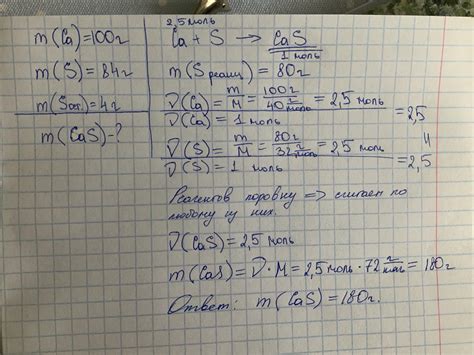 m(Ca)=100г
m(S)=84г
m(Sост.)=4г
m(CaS)-?
2,5 моль
Ca + S → CaS
1 моль
m(S реакц) = 80г
ν(Ca) = m/M = 100г / 40 г/моль = 2,5 моль
ν(Ca) = 1 моль = 2,5
ν(S) = m/M = 80г / 32 г/моль = 2,5 моль
ν(S) = 1 моль = 2,5
Реагентов поровну => считаем по
любому из них.
ν(CaS) = 2,5 моль
m(CaS) = ν · M = 2,5 моль · 72 г/моль = 180г
Ответ: m(CaS) = 180г.